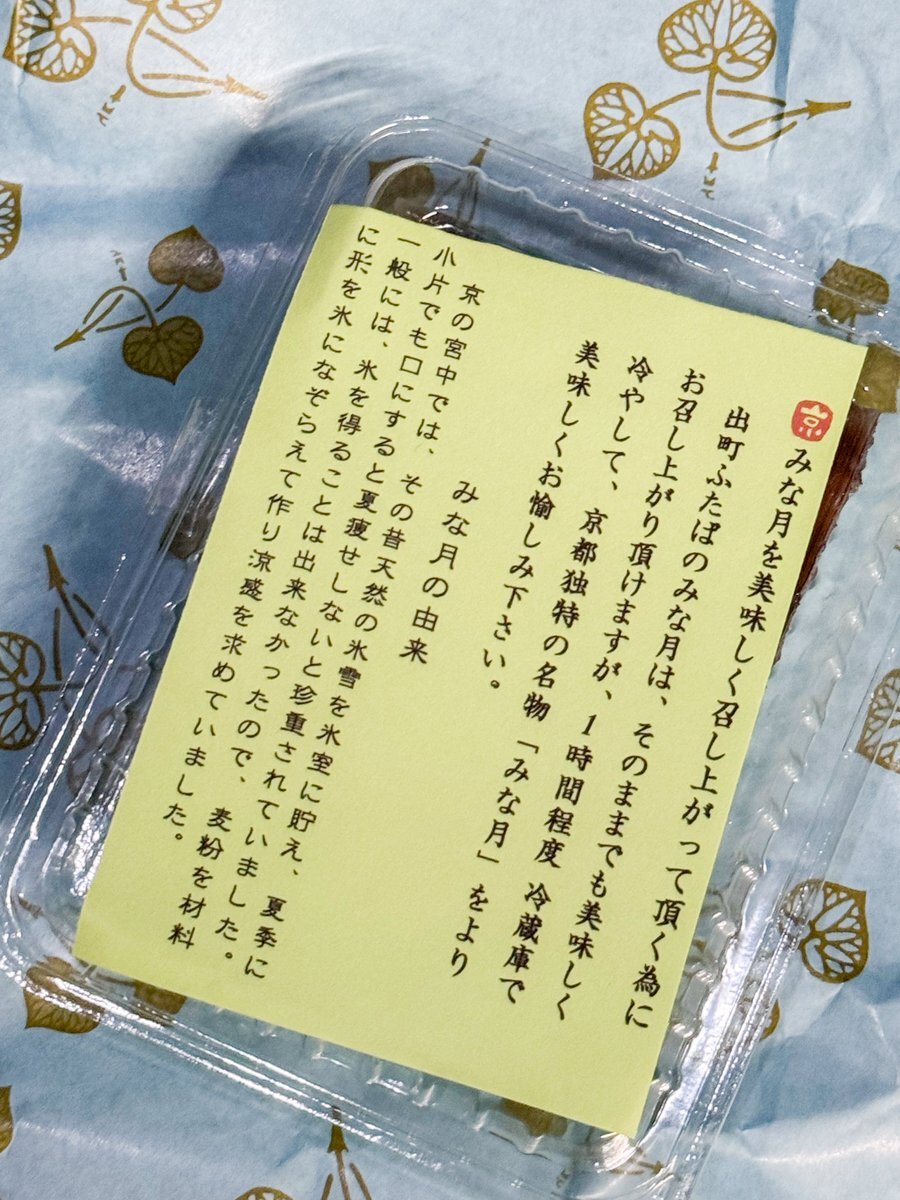 京
みな月を美味しく召し上がって頂く為に
出町ふたばのみな月は、そのままでも美味しく
お召し上がり頂けますが、1時間程度 冷蔵庫で
冷やして、京都独特の名物「みな月」をより
美味しくお愉しみ下さい。
みな月の由来
京の宮中では、その昔天然の氷雪を氷室に貯え、夏季に
小片でも口にすると夏痩せしないと珍重されていました。
一般には、氷を得ることは出来なかったので、麦粉を材料
に形を氷になぞらえて作り涼盛を求めていました。